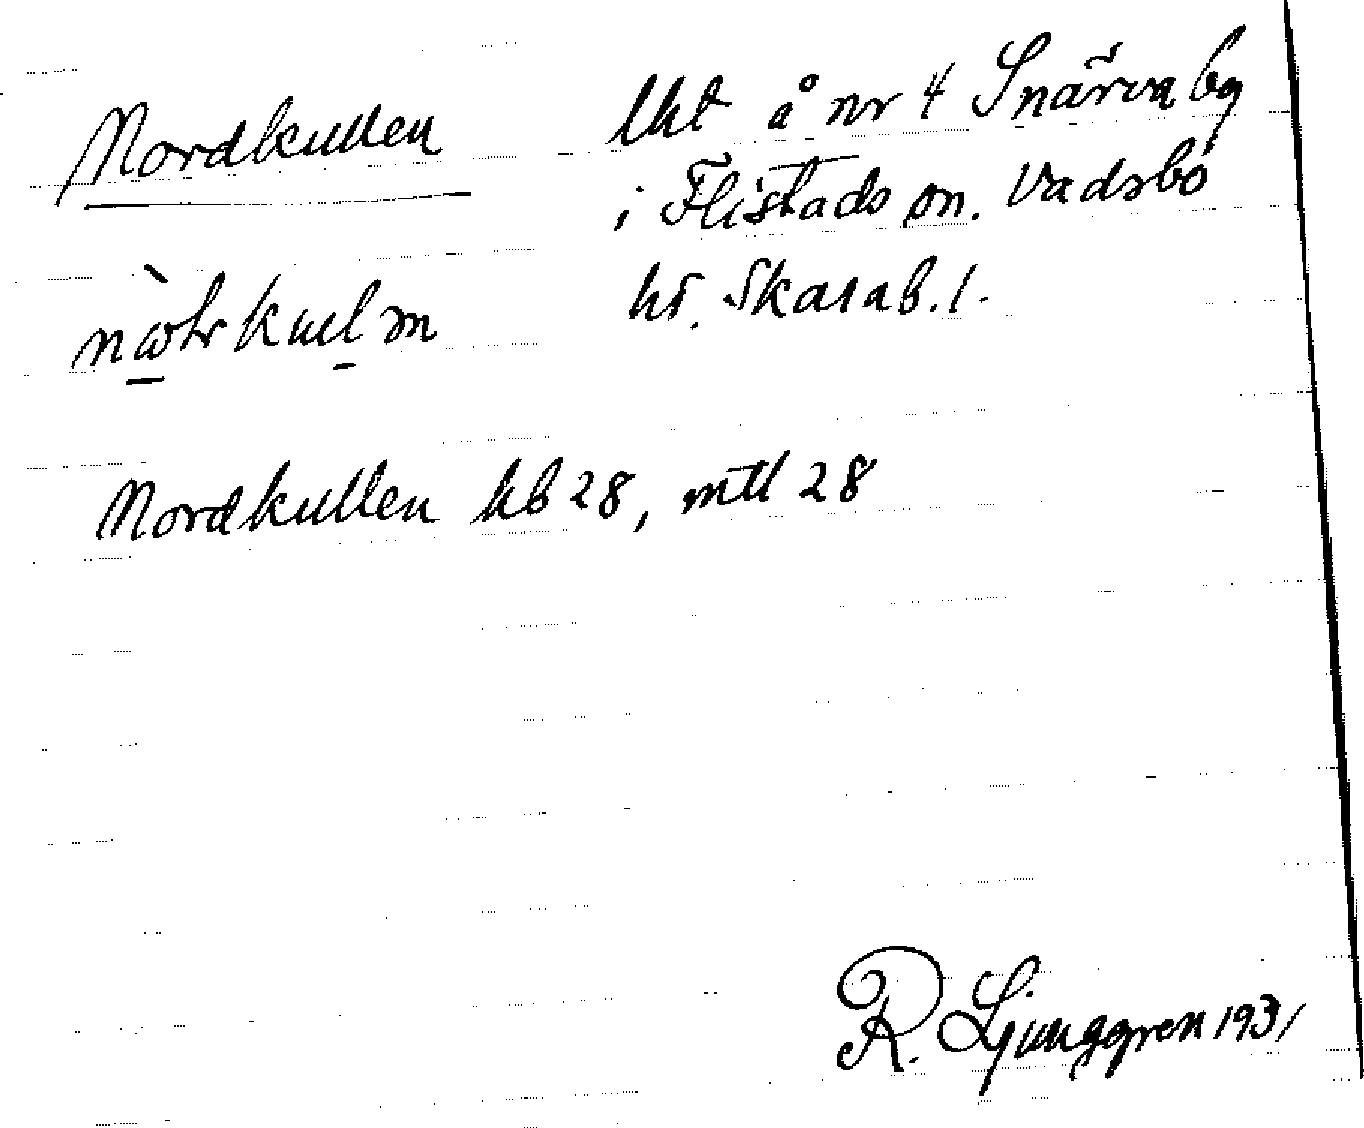 Nordkullen
lht å nr 4 Snärva by
i Flistads sn. Vadsbo
hd. Skarab. l.
Nordkullen hb 28, mtl 28
R. Ljunggren 1931